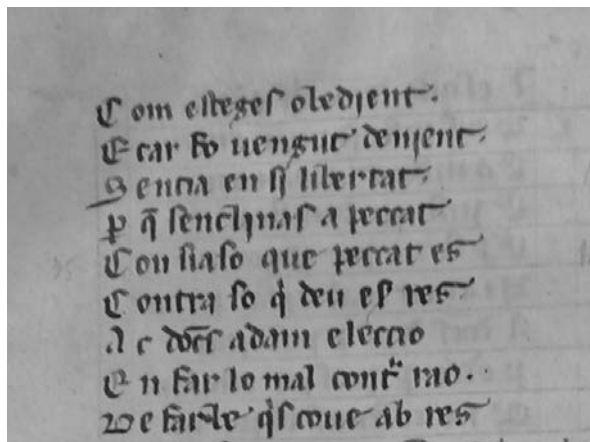 C om esteges obedient.
E car fo uengut denient.
S entia en si libertat.
ꝑ q̄ senclinas a peccat
C on siaso que peccat es
C ontra so q̇ deu es res.
A c doc̄s adam eleccio
E n far lo mal contᷓ rao.
D e far le q̇s coue ab res